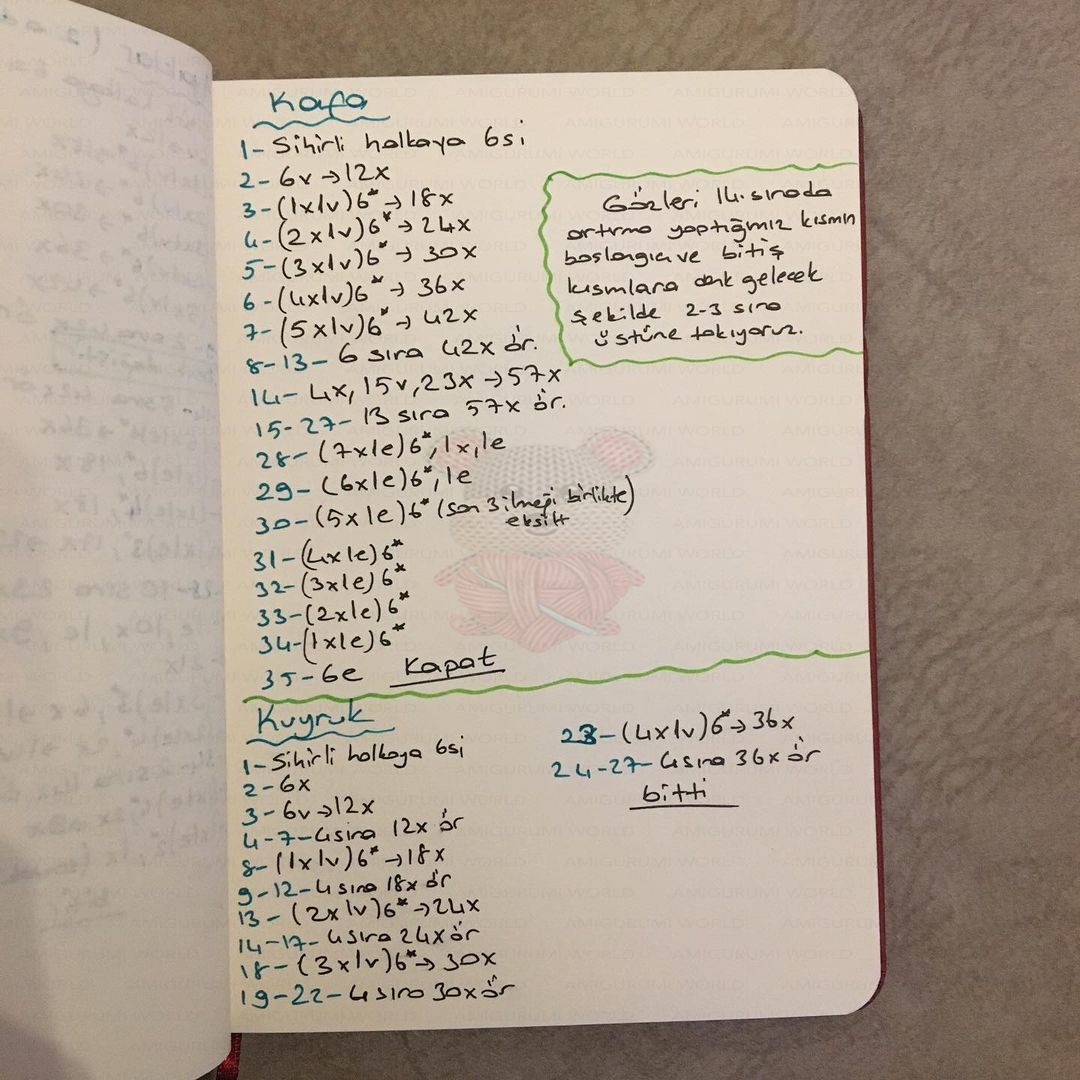 Kafa
1- Sihirli halkaya 6si
2- 6v → 12x
3- (1x1v)6* → 18x
4- (2x1v)6* → 24x
5- (3x1v)6* → 30x
6- (4x1v)6* → 36x
7- (5x1v)6* → 42x
8-13- 6 sıra 42x ör.
14- 4x, 15v, 23x → 57x
15-27- 13 sıra 57x ör.
28- (7x1e)6*, 1x, 1e
29- (6x1e)6*, 1e
30- (5x1e)6* (son 3 ilmeği birlikte)
eksilt
31- (4x1e)6*
32- (3x1e)6*
33- (2x1e)6*
34- (1x1e)6*
35- 6e Kapat
Gözleri 14. sırada
artırma yaptığımız kısmın
başlangıcı ve bitiş
kısmlara denk gelecek
şekilde 2-3 sıra
üstüne takıyoruz.
Kuyruk
1- Sihirli halkaya 6si
2- 6x
3- 6v → 12x
4-7- 4 sıra 12x ör
8- (1x1v)6* → 18x
9-12- 4 sıra 18x ör
13- (2x1v)6* → 24x
14-17- 4 sıra 24x ör
18- (3x1v)6* → 30x
19-22- 4 sıra 30x ör
23- (4x1v)6* → 36x
24-27- 4 sıra 36x ör
bitti
AMIGURUMI WORLD